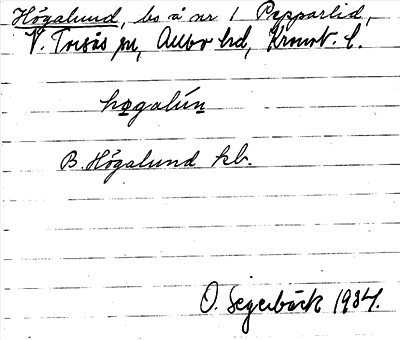 Högalund, bs å nr 1 Pepparlid,
V. Torsås sn, Allbo hd, Kronob. l.
høgalún
B. Högalund kb.
O. Segerbäck 1934.